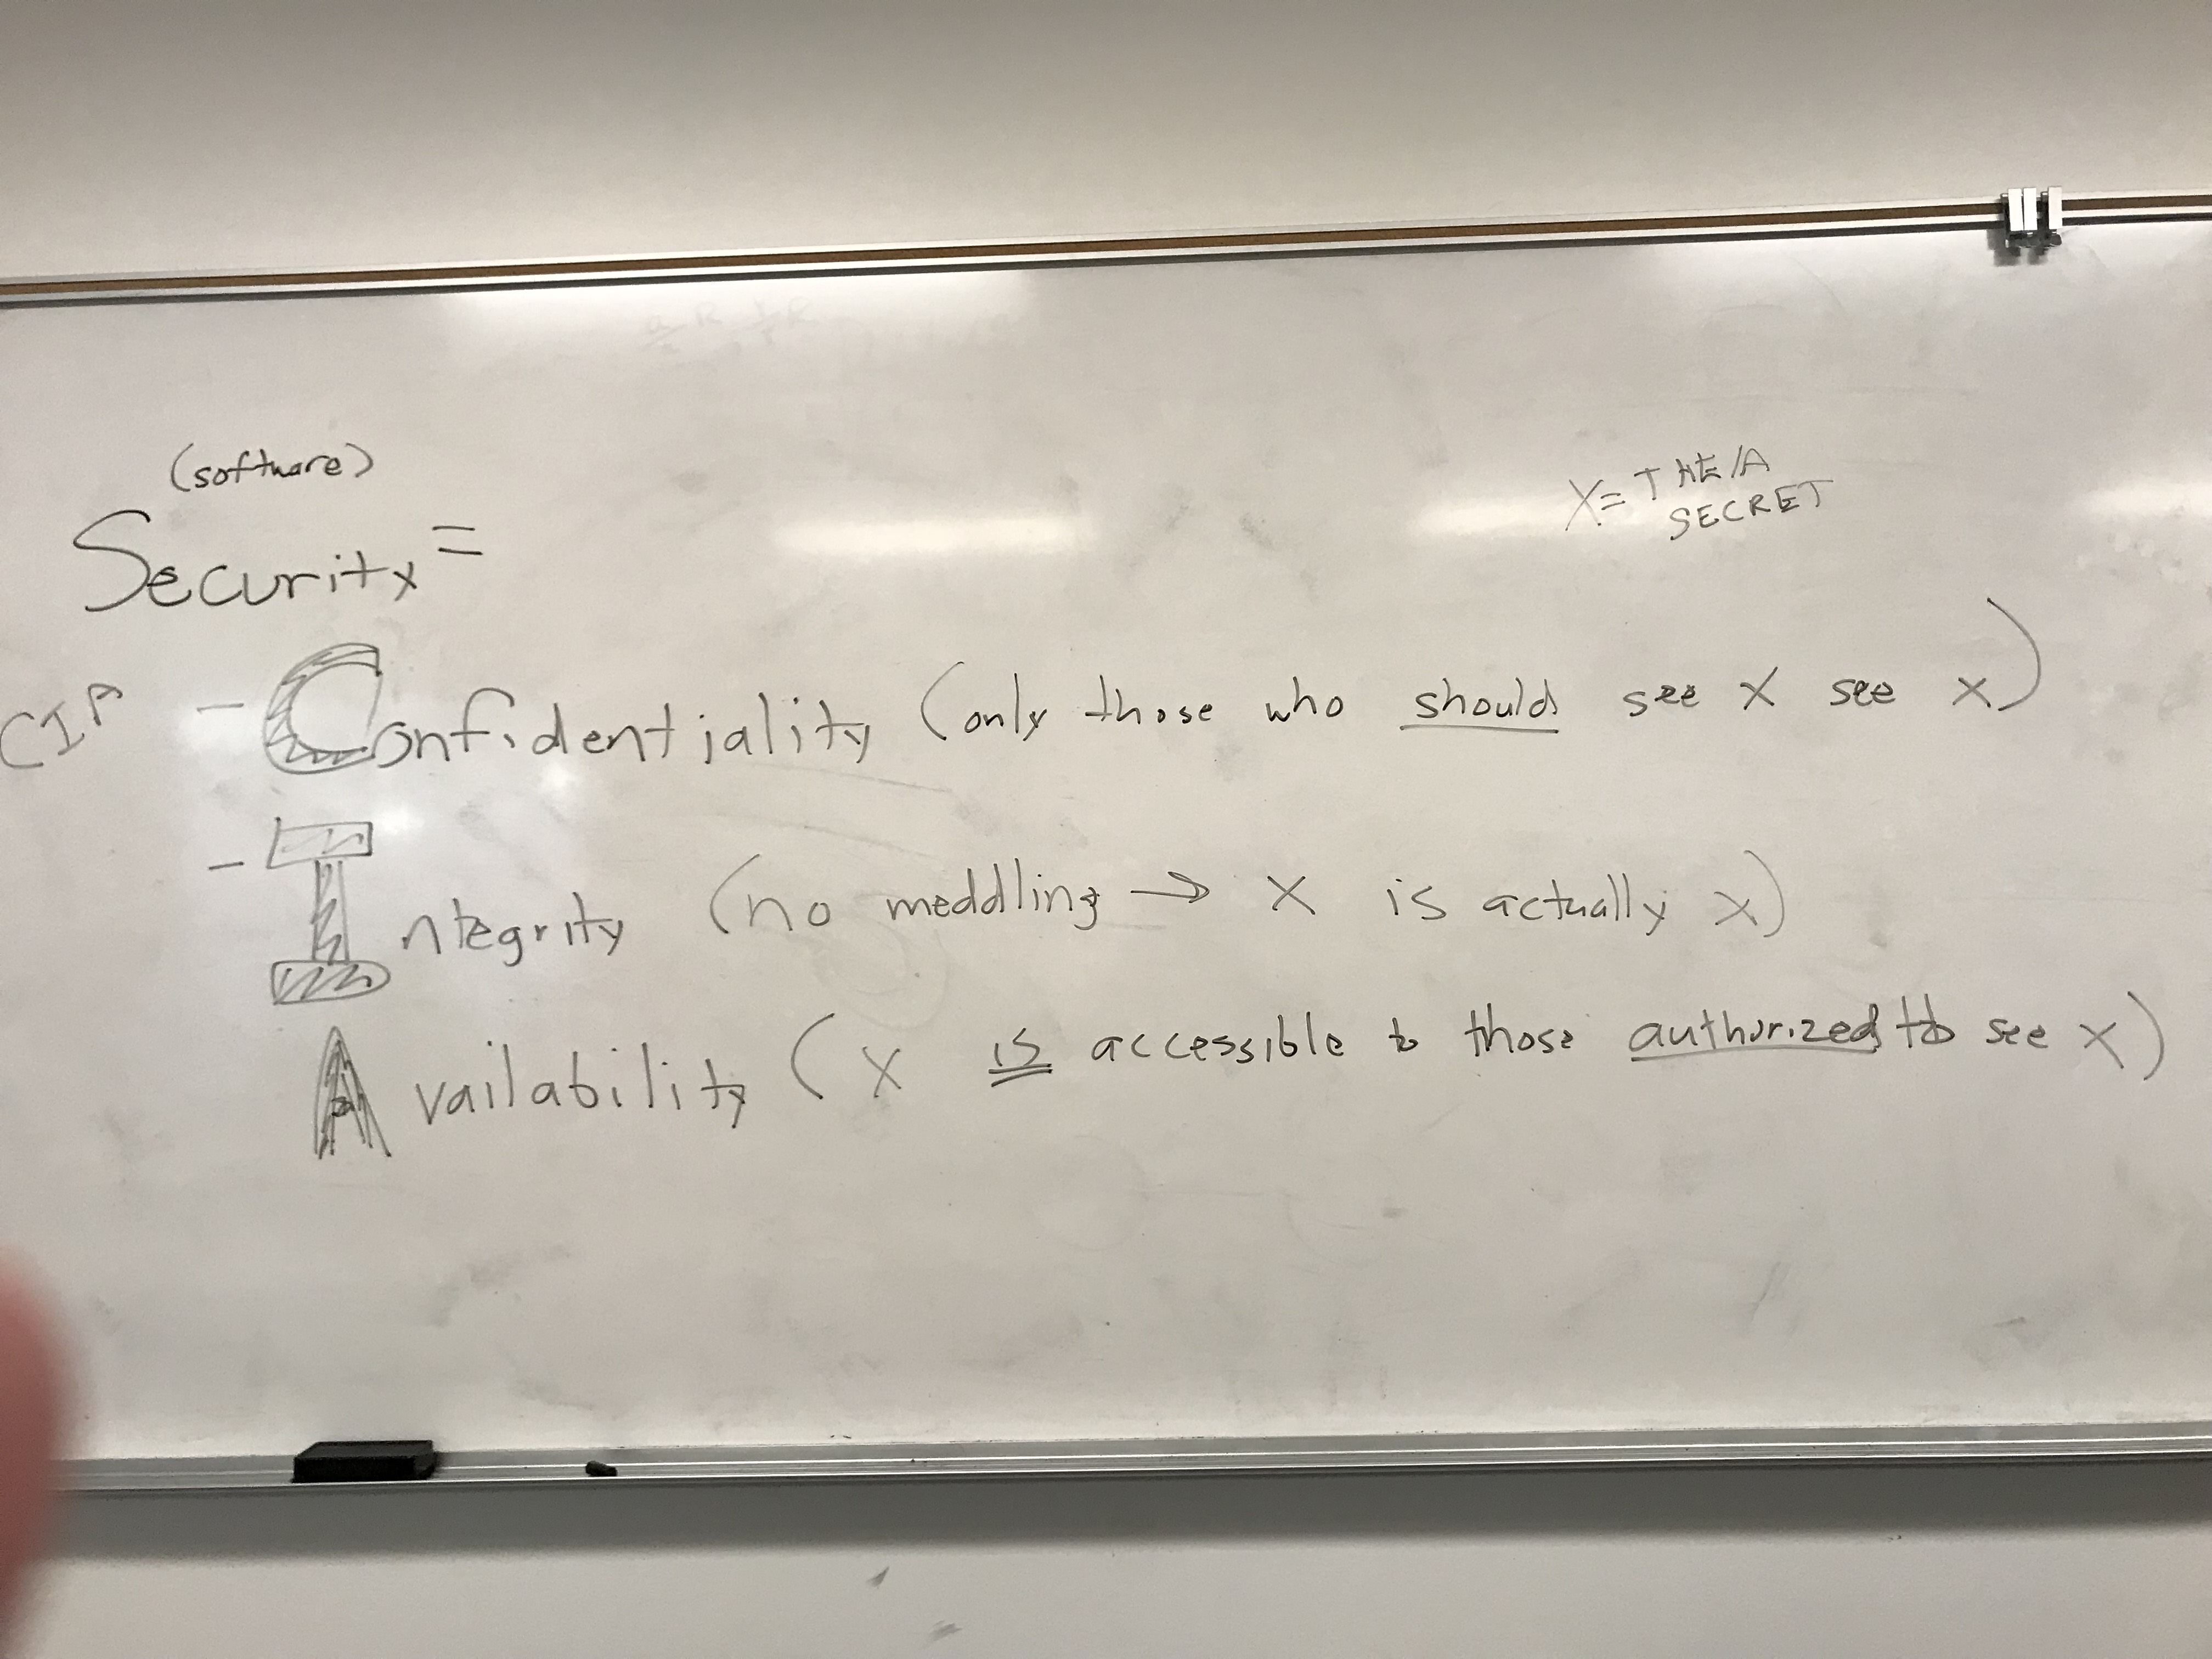 (software)
X = THE/A
SECRET
Security =
CIA
- Confidentiality (only those who should see X see X)
- Integrity (no meddling → X is actually X)
Availability (X is accessible to those authorized to see X)